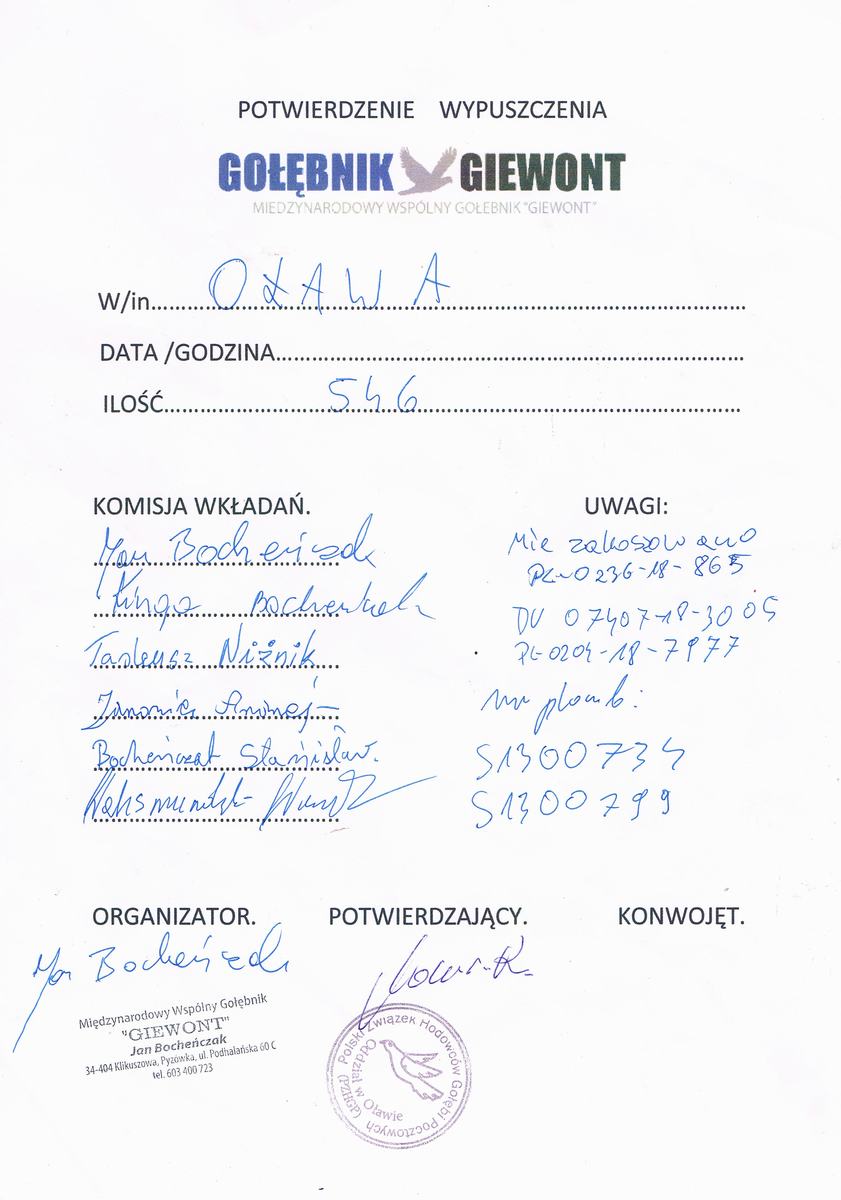 POTWIERDZENIE WYPUSZCZENIA
GOŁĘBNIK GIEWONT
MIEDZYNARODOWY WSPÓLNY GOŁEBNIK "GIEWONT"
W/in OŁAWA
DATA /GODZINA
ILOŚĆ 546
KOMISJA WKŁADAŃ.
Jan Bocheńczak
Kinga Bochenczak
Tadeusz Niżnik
Andrzej
Bocheńczak Stanisław.
UWAGI:
Nie zakoszowano
PL-0236-18-865
DV 07407-18-3005
PL-0204-18-7977
nr plomb:
S1300734
S1300799
ORGANIZATOR.
Jan Bocheńczak
Międzynarodowy Wspólny Gołębnik
"GIEWONT"
Jan Bocheńczak
34-404 Klikuszowa, Pyzówka, ul. Podhalańska 60 C
tel. 603 400 723
POTWIERDZAJĄCY.
Polski Związek Hodowców Gołębi Pocztowych
(PZHGP)
Oddział w Oławie
KONWOJĘT.